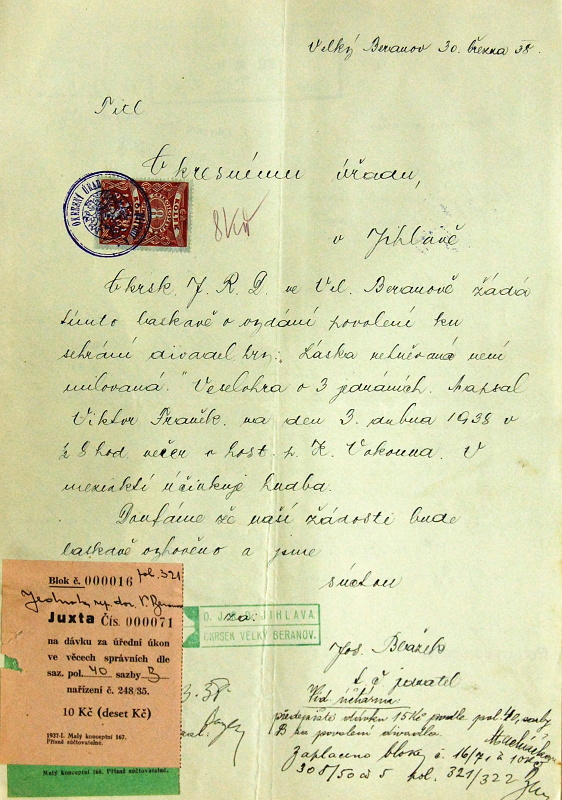 Velký Beranov 30. března 38.
Titl
Okresnímu úřadu,
OKRESNÍ ÚŘAD
8 Kč
v Jihlavě
Okrsk J. R. D. ve Vel. Beranově žádá
tímto laskavě o vydání povolení ku
sehrání divadel. hry: „Láska nehněvaná není
milovaná." Veselohra o 3 jednáních. Napsal
Viktor Braněk, na den 3. dubna 1938 v
½ 8 hod. večer v host. p. K. Vokouna. V
meziaktí účinkuje hudba.
Doufáme že naší žádosti bude
laskavě vyhověno a jsme
súctou
za:
O. J. R. D. JIHLAVA
OKRSEK VELKÝ BERANOV.
Jos. Blážek
t. č. jednatel
Blok č. 000016 pol. 321
Juxta Čís. 000071
na dávku za úřední úkon
ve věcech správních dle
saz. pol. 40 sazby B
nařízení č. 248/35.
10 Kč (deset Kč)
1937-I. Malý konceptní 167.
Přísně zúčtovatelné.
Malý konceptní 168. Přísně zúčtovatelné.
3. 38.
Vid. účtárna
předepište dávku 15 Kč podle pol. 40, sazby
B za povolení divadla.
Zaplaceno bloky č. 16/71 à 10 Kč
308/50 à 5 pol. 321/322